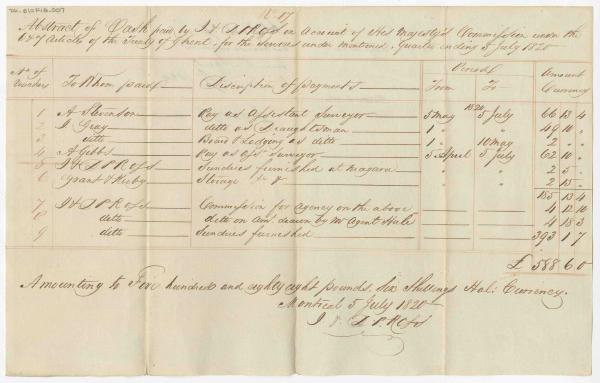 Abstract of Cash paid by J & D P Ross on Account of His Majesty's Commission under the
6 & 7 Articles of the Treaty of Ghent, for the Services under mentioned. Quarter ending 5 July 1820
No. of Vouchers To Whom paid Discription of payments Period From To Amount Currency
1 A Stevenson Pay as Assistant Surveyor 5 May 1820 5 July 66 13 4
2 J Gray ditto as Draughtsman 1 " " 49 10 "
3 ditto Board & Lodging as ditto 1 " 10 May 2 " "
4 A Gibbs Pay as Asst Surveyor 5 April 5 July 62 10 "
5 J & D P Ross Sundries furnished at Niagara " " 2 5 "
6 Grant & Kirby Storage &c &c " " 2 15 "
185 13 4
7 J & D P Ross Commission for agency on the above 4 12 10
8 ditto ditto on Amt. drawn by Mr Agent Hale 4 18 3
9 ditto Sundries furnished 393 1 7
£ 588 6 0
Amounting to Five hundred and eighty eight pounds, Six Shillings Hal: Currency.
Montreal 5 July 1820
J & D P. Ross